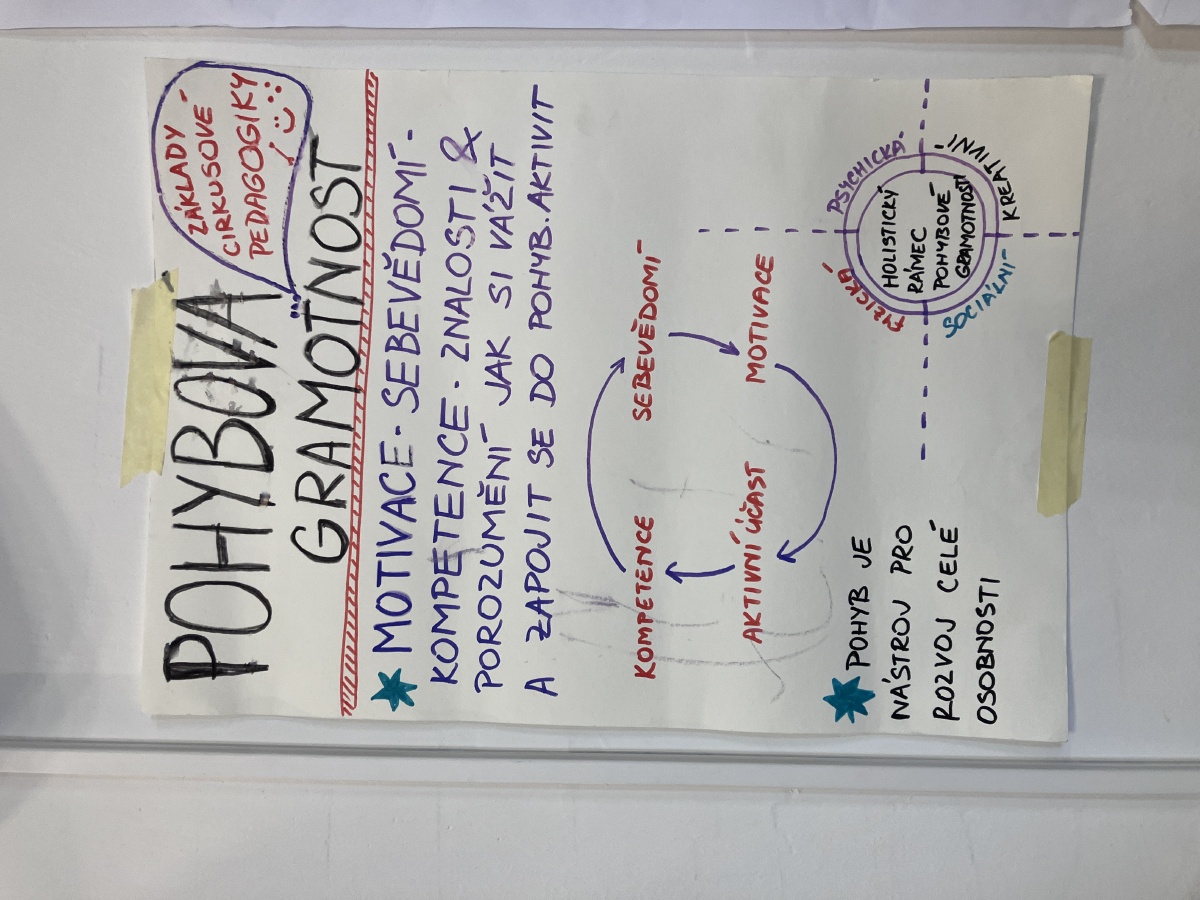 POHYBOVÁ
GRAMOTNOST
ZÁKLADY
CIRKUSOVÉ
PEDAGOGIKY
MOTIVACE · SEBEVĚDOMÍ ·
KOMPETENCE · ZNALOSTI &
POROZUMĚNÍ JAK SI VÁŽIT
A ZAPOJIT SE DO POHYB. AKTIVIT
KOMPETENCE
SEBEVĚDOMÍ
MOTIVACE
AKTIVNÍ ÚČAST
POHYB JE
NÁSTROJ PRO
ROZVOJ CELÉ
OSOBNOSTI
FYZICKÁ
PSYCHICKÁ
HOLISTICKÝ
RÁMEC
POHYBOVÉ
GRAMOTNOSTI
SOCIÁLNÍ
KREATIVNÍ